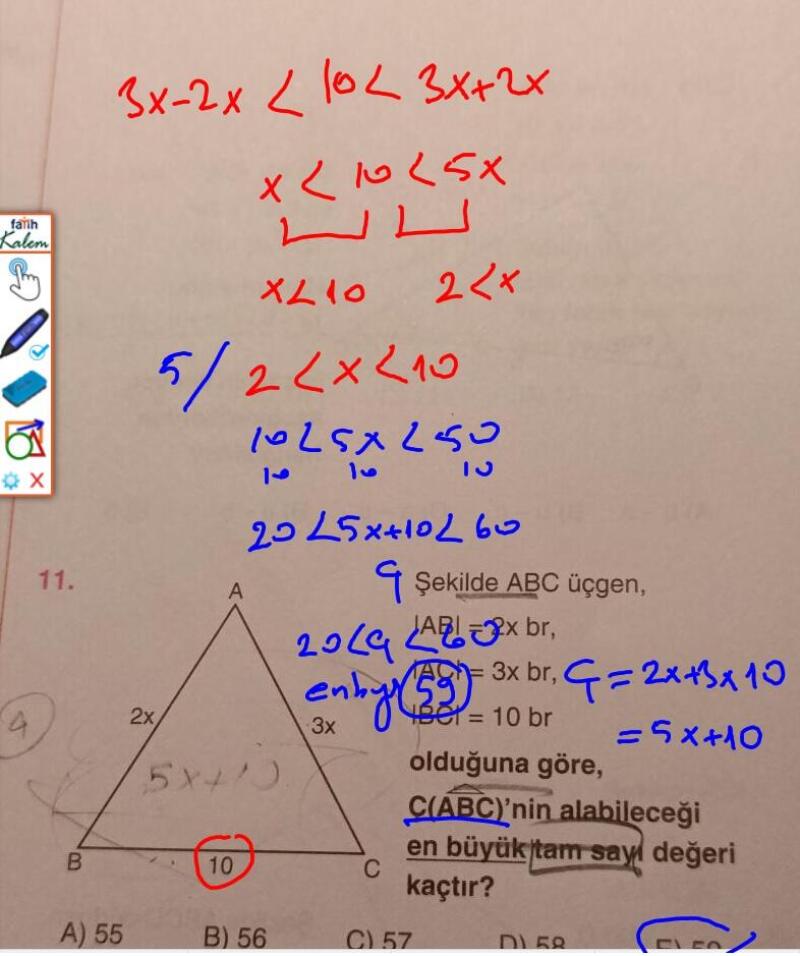 3x-2x < 10 < 3x+2x
x < 10 < 5x
x<10 2<x
5/ 2 < x < 10
10 < 5x < 50
10 10 10
20 < 5x+10 < 60
fatih
Kalem
11.
Ç
Şekilde ABC üçgen,
|AB| = 2x br,
20<Ç<60
|AC| = 3x br,
Ç = 2x+3x 10
enby 59
|BC| = 10 br
= 5x+10
olduğuna göre,
C(ABC)'nin alabileceği
en büyük tam sayı değeri
kaçtır?
A
2x
3x
4
5x+10
B
10
C
A) 55 B) 56 C) 57 D) 58 E) 59